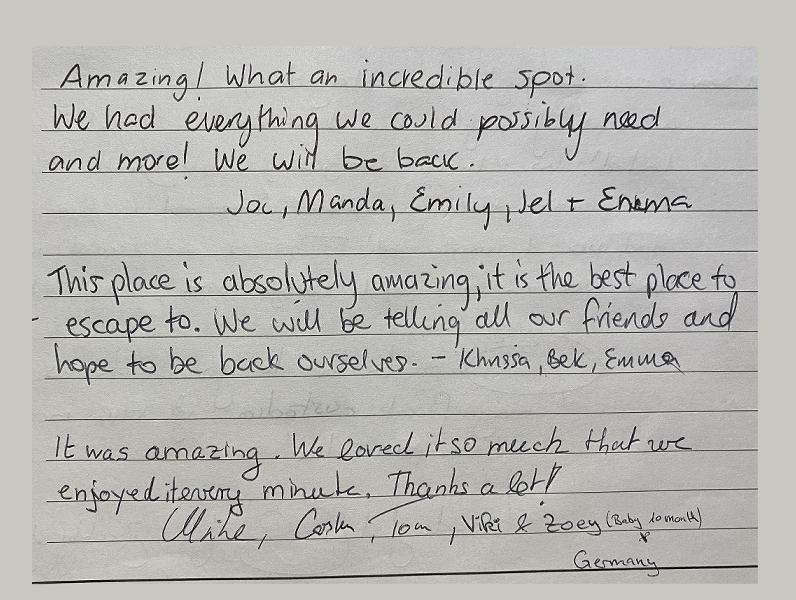 Amazing! What an incredible spot.
We had everything we could possibly need
and more! We will be back.
Manda, Emily, Jel + Emma
This place is absolutely amazing, it is the best place to
escape to. We will be telling all our friends and
hope to be back ourselves. - Khrissia, Bek, Emma
It was amazing. We loved it so much that we
enjoyed it every minute. Thanks a lot!
Tom, Viki & Zoey (Baby 10 month)
Germany